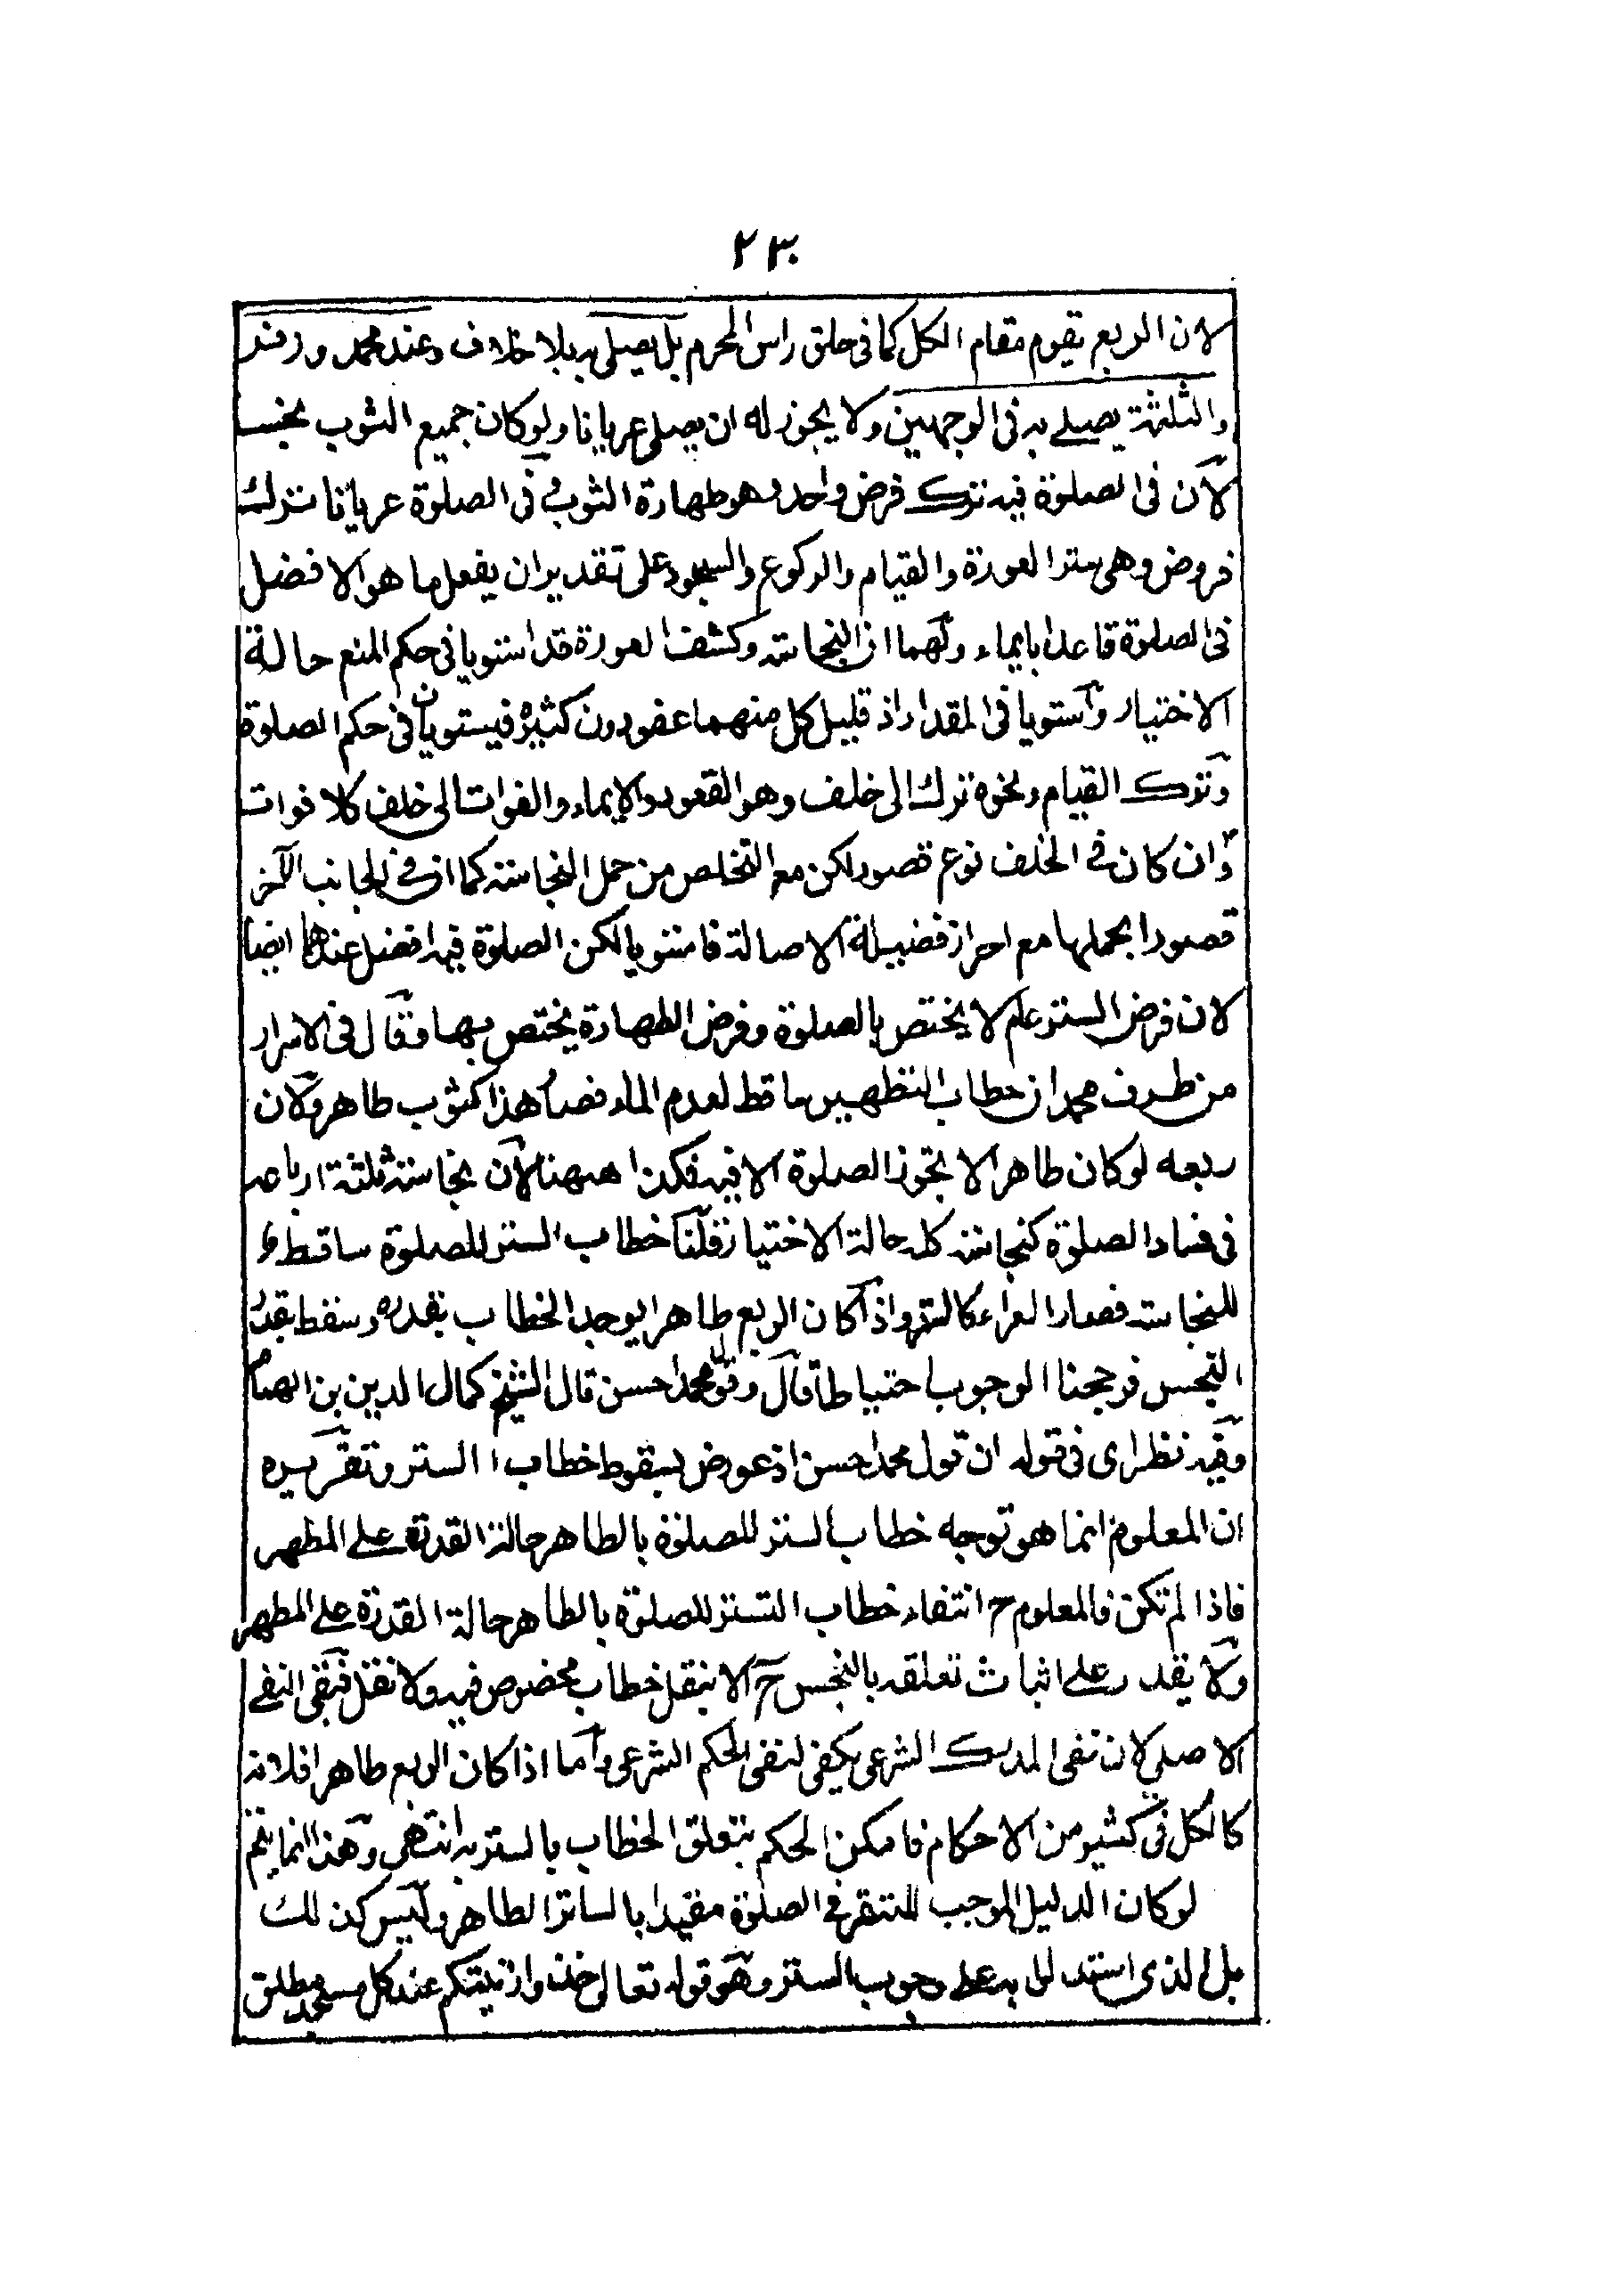 ٢٣٠
لان الربع يقوم مقام الكل كما فى حلق راس المحرم بل يصلى به بلا خلاف وعند محمد وزفر
والثلثة يصلے به فى الوجهين ولا يجوز له ان يصلى عريانا ولو كان جميع الثوب نجسا
لان فى الصلوة فيه ترك فرض واحد وهو طهارة الثوب وفى الصلوة عريانا ترك
فروض وهى ستر العورة والقيام والركوع والسجود على تقدير ان يفعل ما هو الافضل
فى الصلوة قاعدا بايماء ولهما ان النجاسة وكشف العورة قد استويا فى حكم المنع حالة
الاختيار واستويا فى المقدار اذ قليل كل منهما عفو دون كثيره فيستويان فى حكم الصلوة
وترك القيام ونحوه ترك الى خلف وهو القعود والايماء والفوات الى خلف كلا فوات
وان كان فے الخلف نوع قصور لكن مع التخلص من حمل النجاسة كما ان فے الجانب الآخر
قصورا بحملها مع احراز فضيلة الاصالة فاستويا لكن الصلوة فيه افضل عندهما ايضا
لان فرض الستر عام لا يختص بالصلوة وفرض الطهارة يختص بها وقال فى الاسرار
من طرف محمد ان خطاب التطهير ساقط لعدم الماء فصار هذا كثوب طاهر ولان
ربعه لو كان طاهرا لا تجوز الصلوة الا فيه فكذا ههنا لان نجاسة ثلثة ارباعه
فى فساد الصلوة كنجاسة كله حالة الاختيار قلنا خطاب الستر للصلوة ساقط
للنجاسة فصار العراء كالستر واذا كان الربع طاهرا يوجد الخطاب بقدره وسقط بقدر
النجس فرجحنا الوجوب احتياطا قال وقول محمد احسن قال الشيخ كمال الدين بن الهمام
وفيه نظر اى فى قوله ان قول محمد احسن اذ عورض بسقوط خطاب الستر وتقريره
ان المعلوم انما هو توجه خطاب الستر للصلوة بالطاهر حالة القدرة علے المطهر
فاذا لم تكن فالمعلوم ح انتفاء خطاب التستر للصلوة بالطاهر حالة القدرة علے المطهر
ولا يقدر علے اثبات تعلقه بالنجس ح الا بنقل خطاب مخصوص فيه ولا نقل فبقى النفے
الاصلي لان نفى المدرك الشرعى يكفى لنفى الحكم الشرعى واما اذا كان الربع طاهرا فلانه
كالكل فى كثير من الاحكام فامكن الحكم بتعلق الخطاب بالستر به انتهى وهذا انما يتم
لو كان الدليل الموجب للستر فے الصلوة مقيدا بالساتر الطاهر وليس كذلك
بل الذى استدل به علے وجوب الستر وهو قوله تعالى خذوا زينتكم عند كل مسجد مطلق